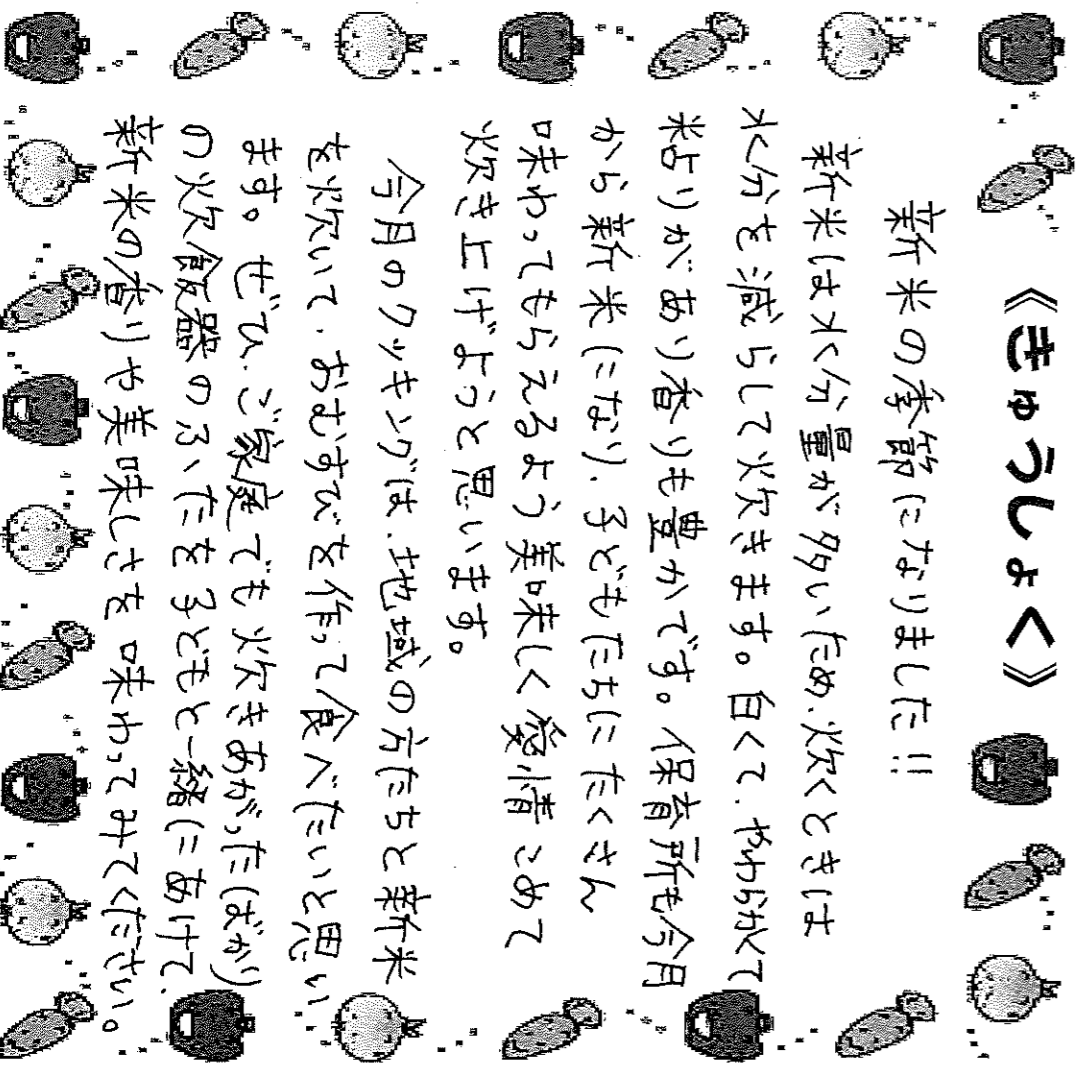 《きゅうしょく》
新米の季節になりました!!
新米は水分量が多いため、炊くときは
水分を減らして炊きます。白くて、やわらかくて
粘りがあり香りも豊かです。保育所も今月
から新米になり、子どもたちにたくさん
味わってもらえるよう美味しく愛情こめて
炊き上げようと思います。
今月のクッキングは、地域の方たちと新米
を炊いて、おむすびを作って食べたいと思い
ます。ぜひ、ご家庭でも炊きあがったばかり
の炊飯器のふたを子どもと一緒にあけて、
新米の香りや美味しさを味わってみてください。